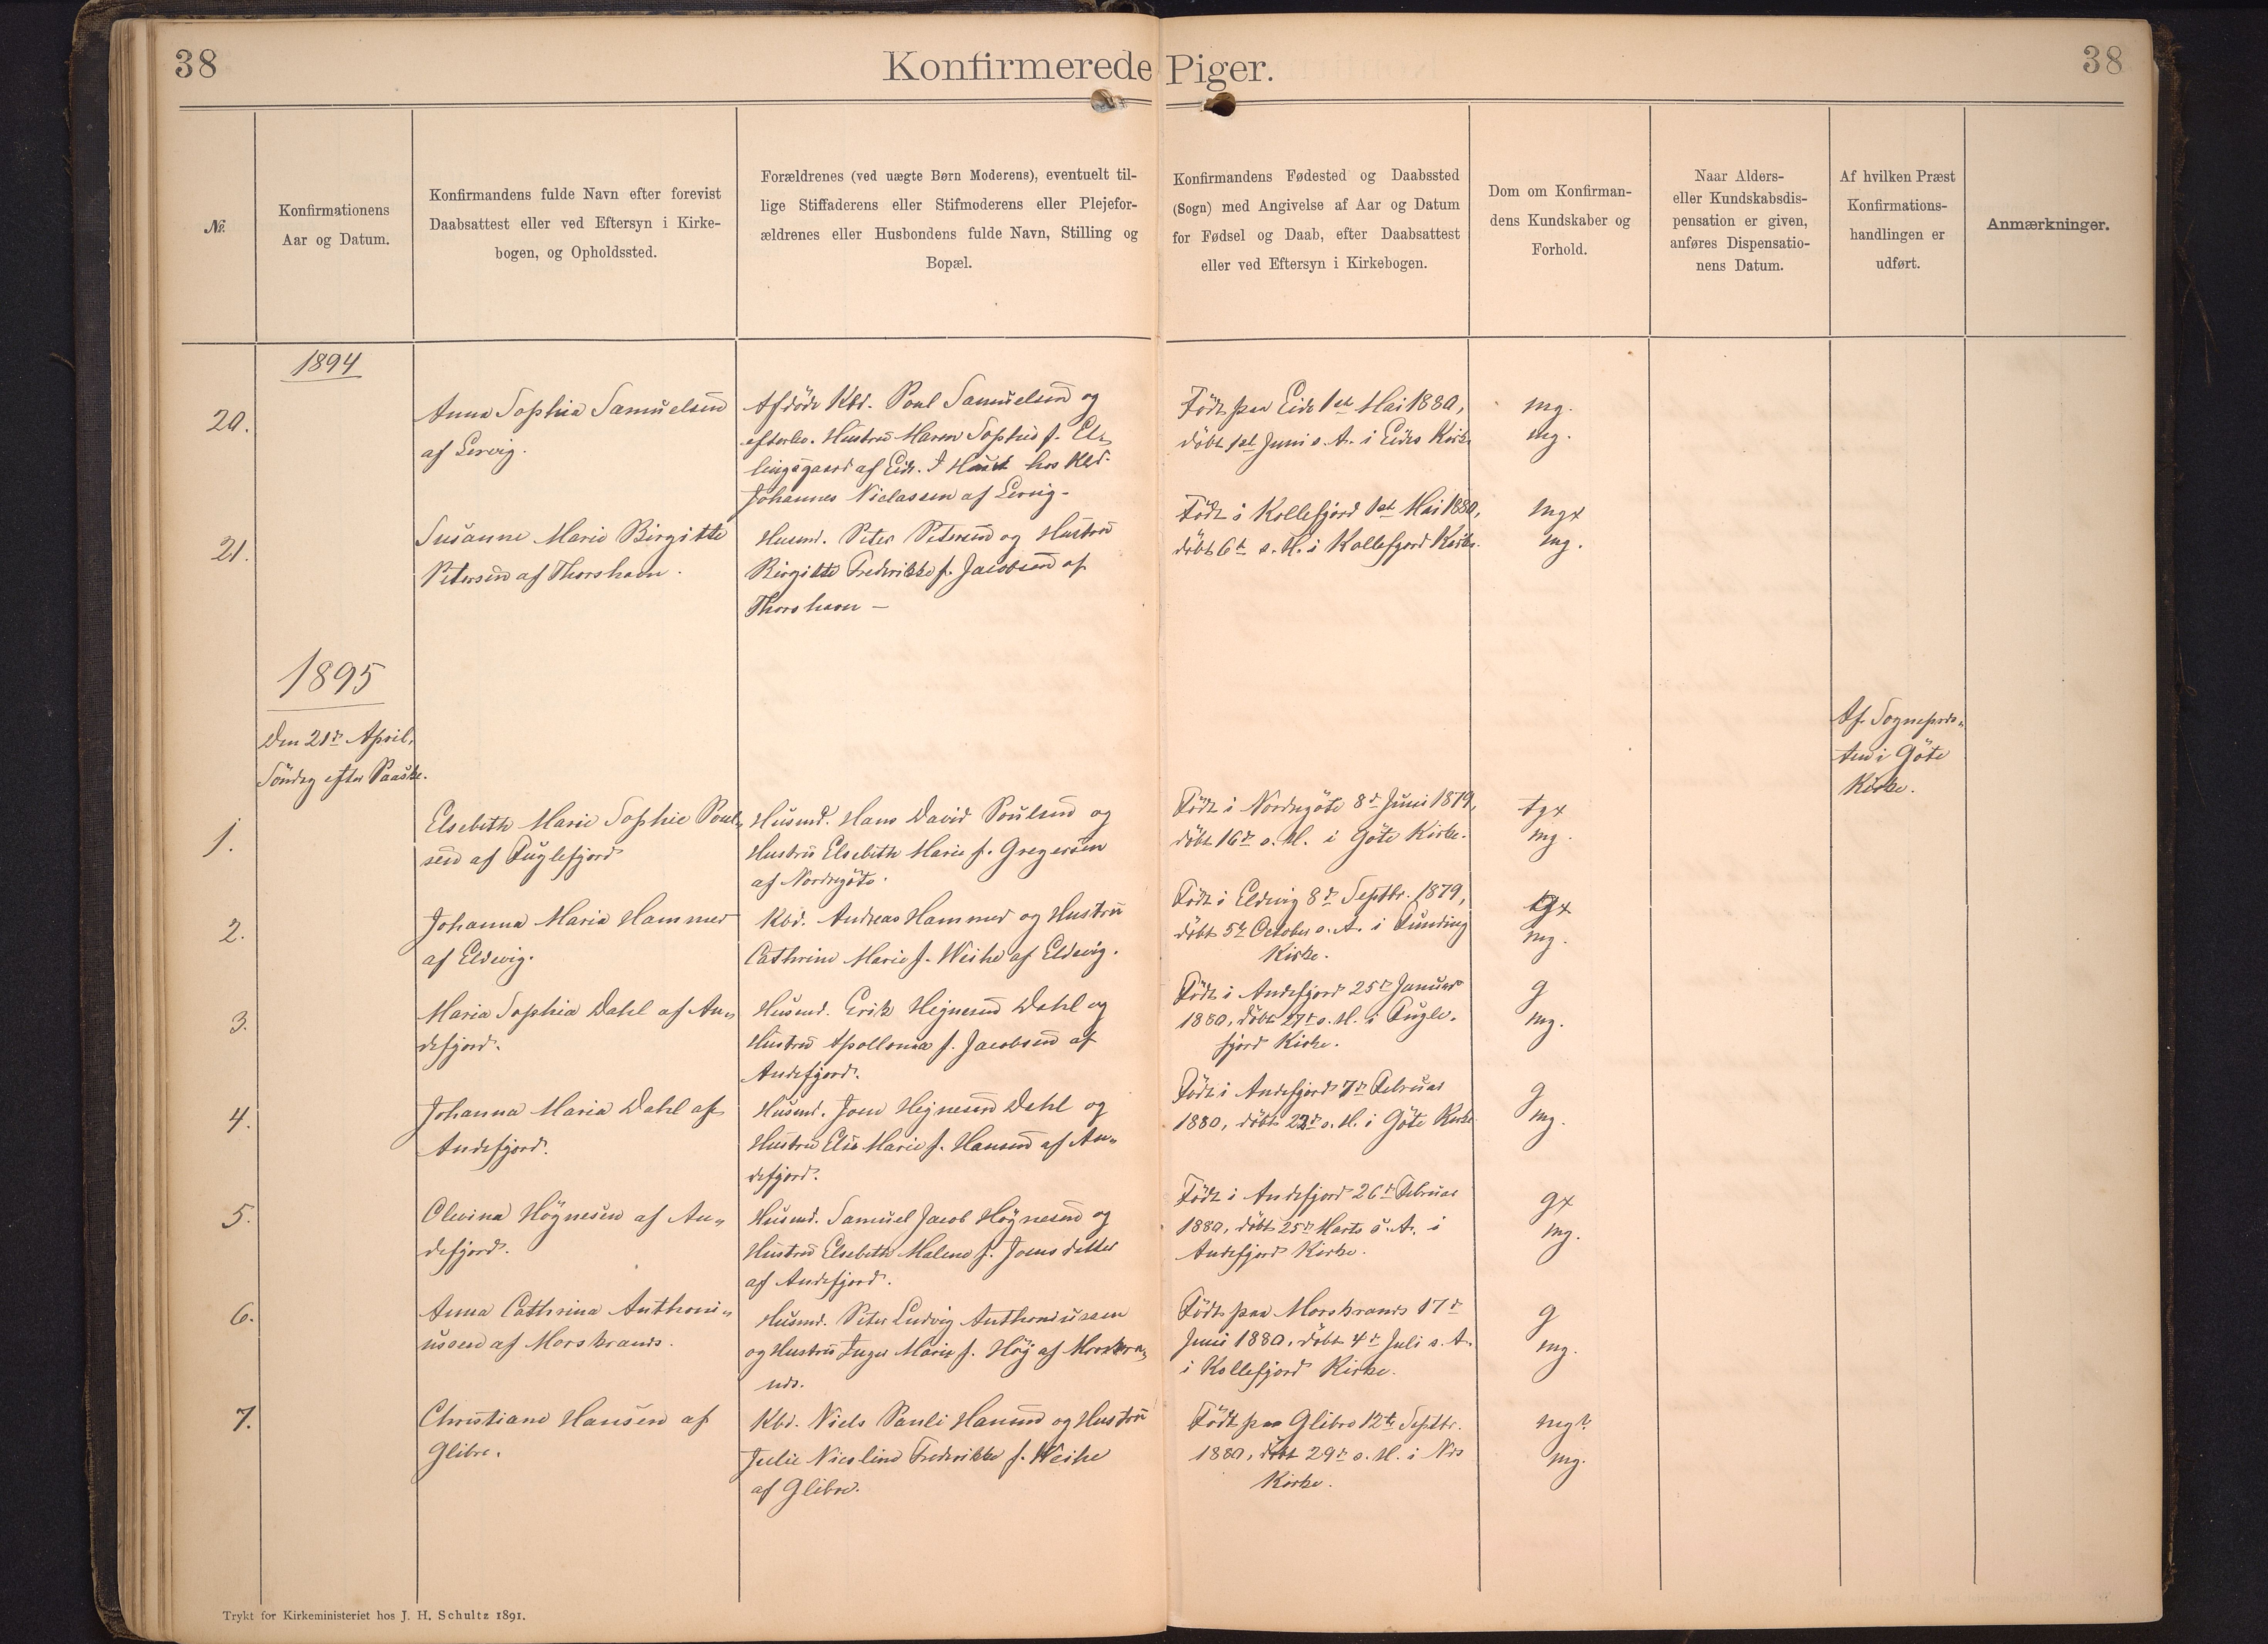 38
Konfirmerede Piger.
38
№.
Konfirmationens
Aar og Datum.
Konfirmandens fulde Navn efter forevist
Daabsattest eller ved Eftersyn i Kirke-
bogen, og Opholdssted.
Forældrenes (ved uægte Børn Moderens), eventuelt til-
lige Stiffaderens eller Stifmoderens eller Plejefor-
ældrenes eller Husbondens fulde Navn, Stilling og
Bopæl.
Konfirmandens Fødested og Daabssted
(Sogn) med Angivelse af Aar og Datum
for Fødsel og Daab, efter Daabsattest
eller ved Eftersyn i Kirkebogen.
Dom om Konfirman-
dens Kundskaber og
Forhold.
Naar Alders-
eller Kundskabsdis-
pensation er given,
anføres Dispensatio-
nens Datum.
Af hvilken Præst
Konfirmations-
handlingen er
udført.
Anmærkninger.
1894
20.
Anna Sophia Samuelsen
af Lervig.
Afdöde Kbd. Poul Samuelsen og
efterlev. Hustru Maren Sophie f. El-
lingsgaard af Eide. I Huset hos Kbd.
Johannes Niclassen af Lervig-
Födt paa Eide 1st Mai 1880,
döbt 1st Juni s. A. i Eides Kirke
mg.
mg.
21.
Susanne Marie Birgitte
Petersen af Thorshavn.
Husmd. Peter Petersen og Hustru
Birgitte Frederikke f. Jacobsen af
Thorshavn —
Födt i Kollefjord 1st Mai 1880,
döbt 6t s. M. i Kollefjord Kirke.
mgx
mg.
1895
Den 21de April,
Söndag efter Paaske.
Af Sognepræs-
ten i Göte
Kirke.
1.
Elsebeth Marie Sophie Poul-
sen af Fuglefjord
Husmd. Hans David Poulsen og
Hustru Elsebeth Marie f. Gregersen
af Nordregöte.
Födt i Nordregöte 8de Juni 1879,
döbt 16de s. M. i Göte Kirke.
tgx
mg.
2.
Johanna Maria Hammer
af Eldevig.
Kbd. Andreas Hammer og Hustru
Cathrine Marie f. Weihe af Eldevig.
Födt i Eldevig 8de Septbr. 1879,
döbt 5te October s. A. i Funding
Kirke.
tgx
mg.
3.
Maria Sophia Dahl af An-
defjord.
Husmd. Erik Hejnesen Dahl og
Hustru Apollonia f. Jacobsen af
Andefjord.
Födt i Andefjord 25de Januar
1880, döbt 27de s. M. i Fugle-
fjord Kirke.
g
mg.
4.
Johanna Maria Dahl af
Andefjord.
Husmd. Joen Hejnesen Dahl og
Hustru Else Marie f. Hansen af An-
defjord.
Födt i Andefjord 7de Februar
1880, döbt 22de s. M. i Göte Kirke
g
mg.
5.
Olevina Högnesen af An-
defjord.
Husmd. Samuel Jacob Högnesen og
Hustru Elsebeth Malene f. Joensdatter
af Andefjord.
Födt i Andefjord 26de Februar
1880, döbt 25de Marts s. A. i
Andefjord Kirke.
gx
mg.
6.
Anna Cathrina Anthoni-
ussen af Morskranes.
Husmd. Peter Ludvig Anthoniussen
og Hustru Inger Marie f. Höj af Morskra-
nes.
Födt paa Morskranes 17de
Juni 1880, döbt 4de Juli s. A.
i Kollefjord Kirke.
g
mg.
7.
Christiane Hansen af
Glibre.
Kbd. Niels Pauli Hansen og Hustru
Julie Nicoline Frederikke f. Weihe
af Glibre.
Födt paa Glibre 12te Septbr.
1880, döbt 29de s. M. i Nes
Kirke.
mg?
mg.
Trykt for Kirkeministeriet hos J. H. Schultz 1891.